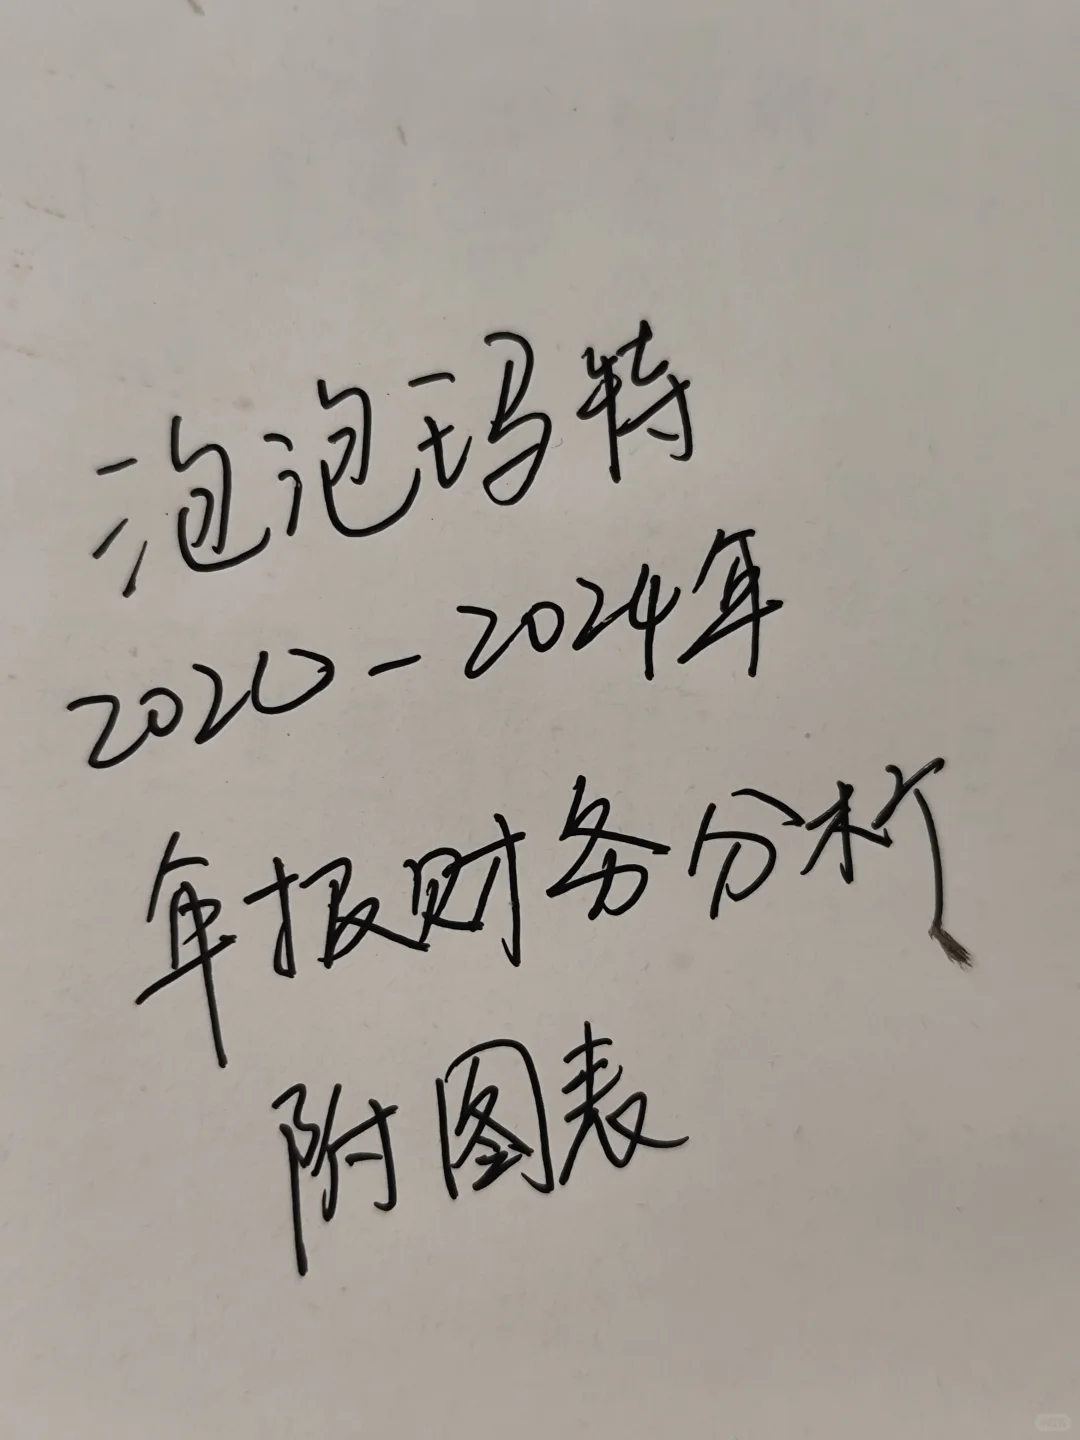 泡泡玛特
2020-2024年
年报财务分析
附图表